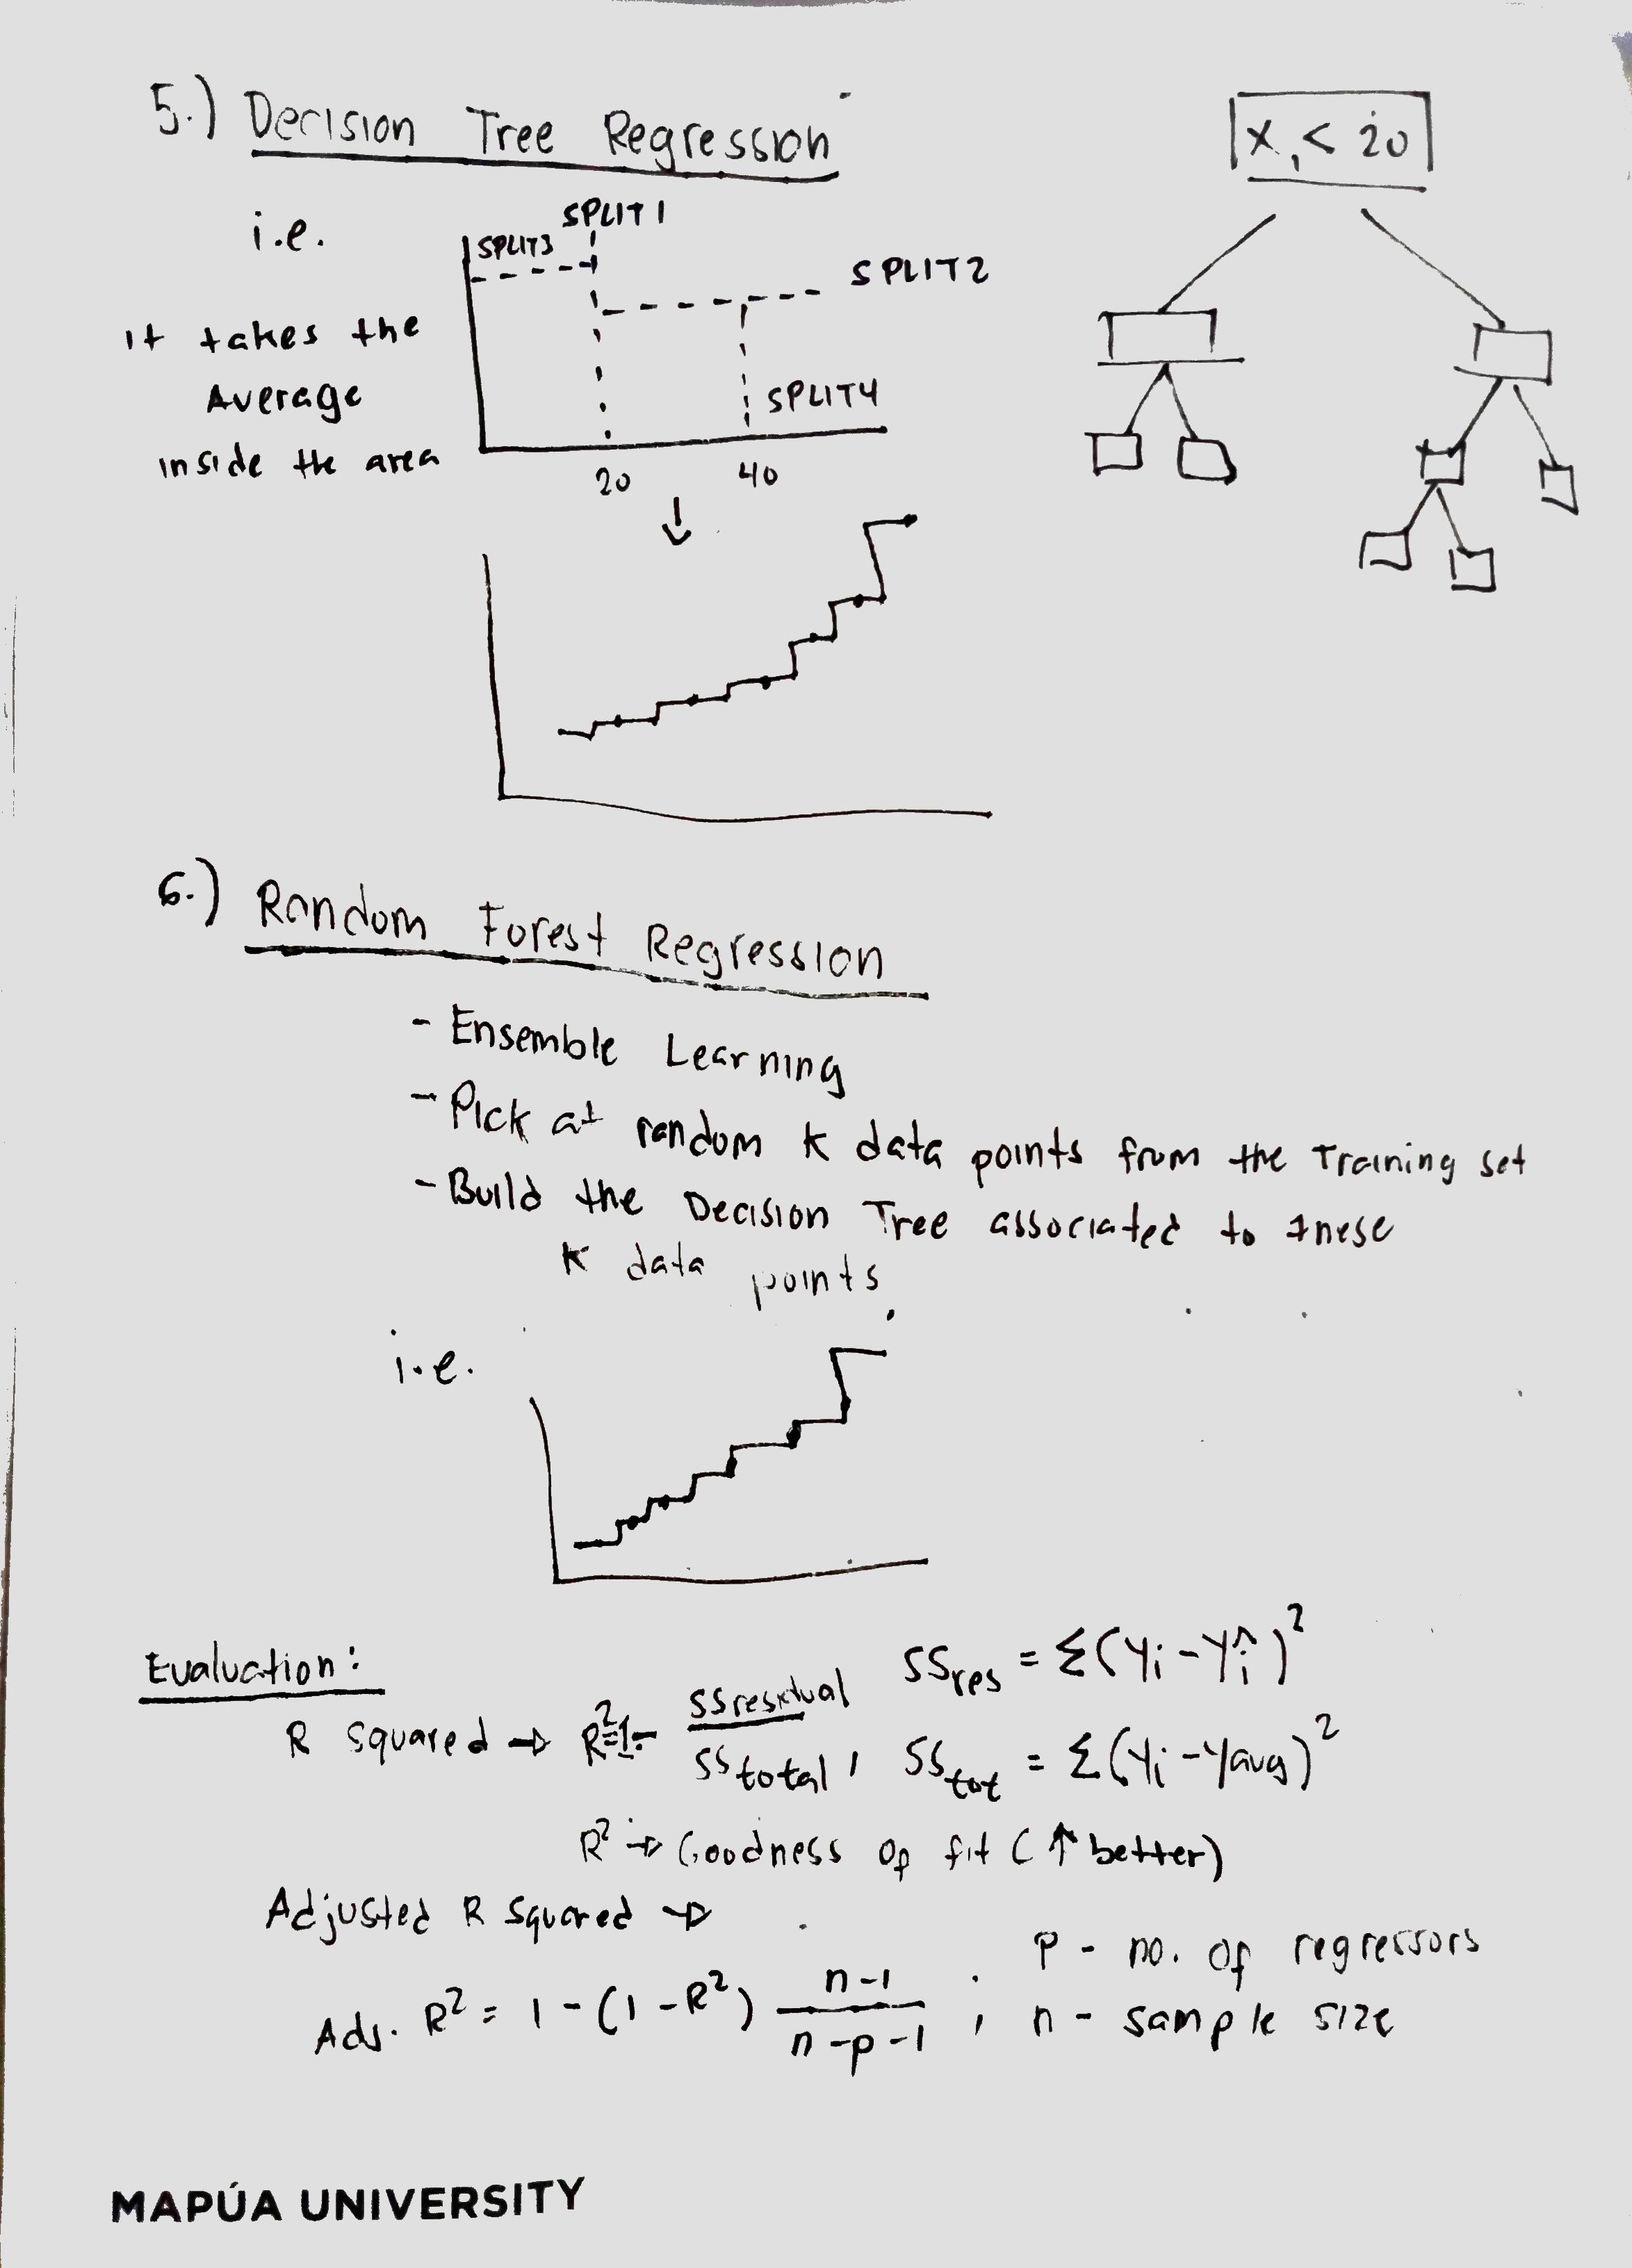 5.) Decision Tree Regression
x₁ < 20
i.e.
SPLIT 1
SPLIT3
SPLIT2
It takes the
Average
inside the area
SPLIT4
20
40
6.) Random Forest Regression
- Ensemble Learning
- Pick at random K data points from the Training set
- Build the Decision Tree associated to these
K data points
i.e.
Evaluation:
SSres = Σ(yi - yî)²
R squared → R²=1- SSresidual / SStotal , SStot = Σ(yi - yavg)²
R² → Goodness of fit (↑ better)
Adjusted R Squared →
p - no. of regressors
Adj. R² = 1 - (1 - R²) n-1 / n-p-1 ; n - sample size
MAPÚA UNIVERSITY